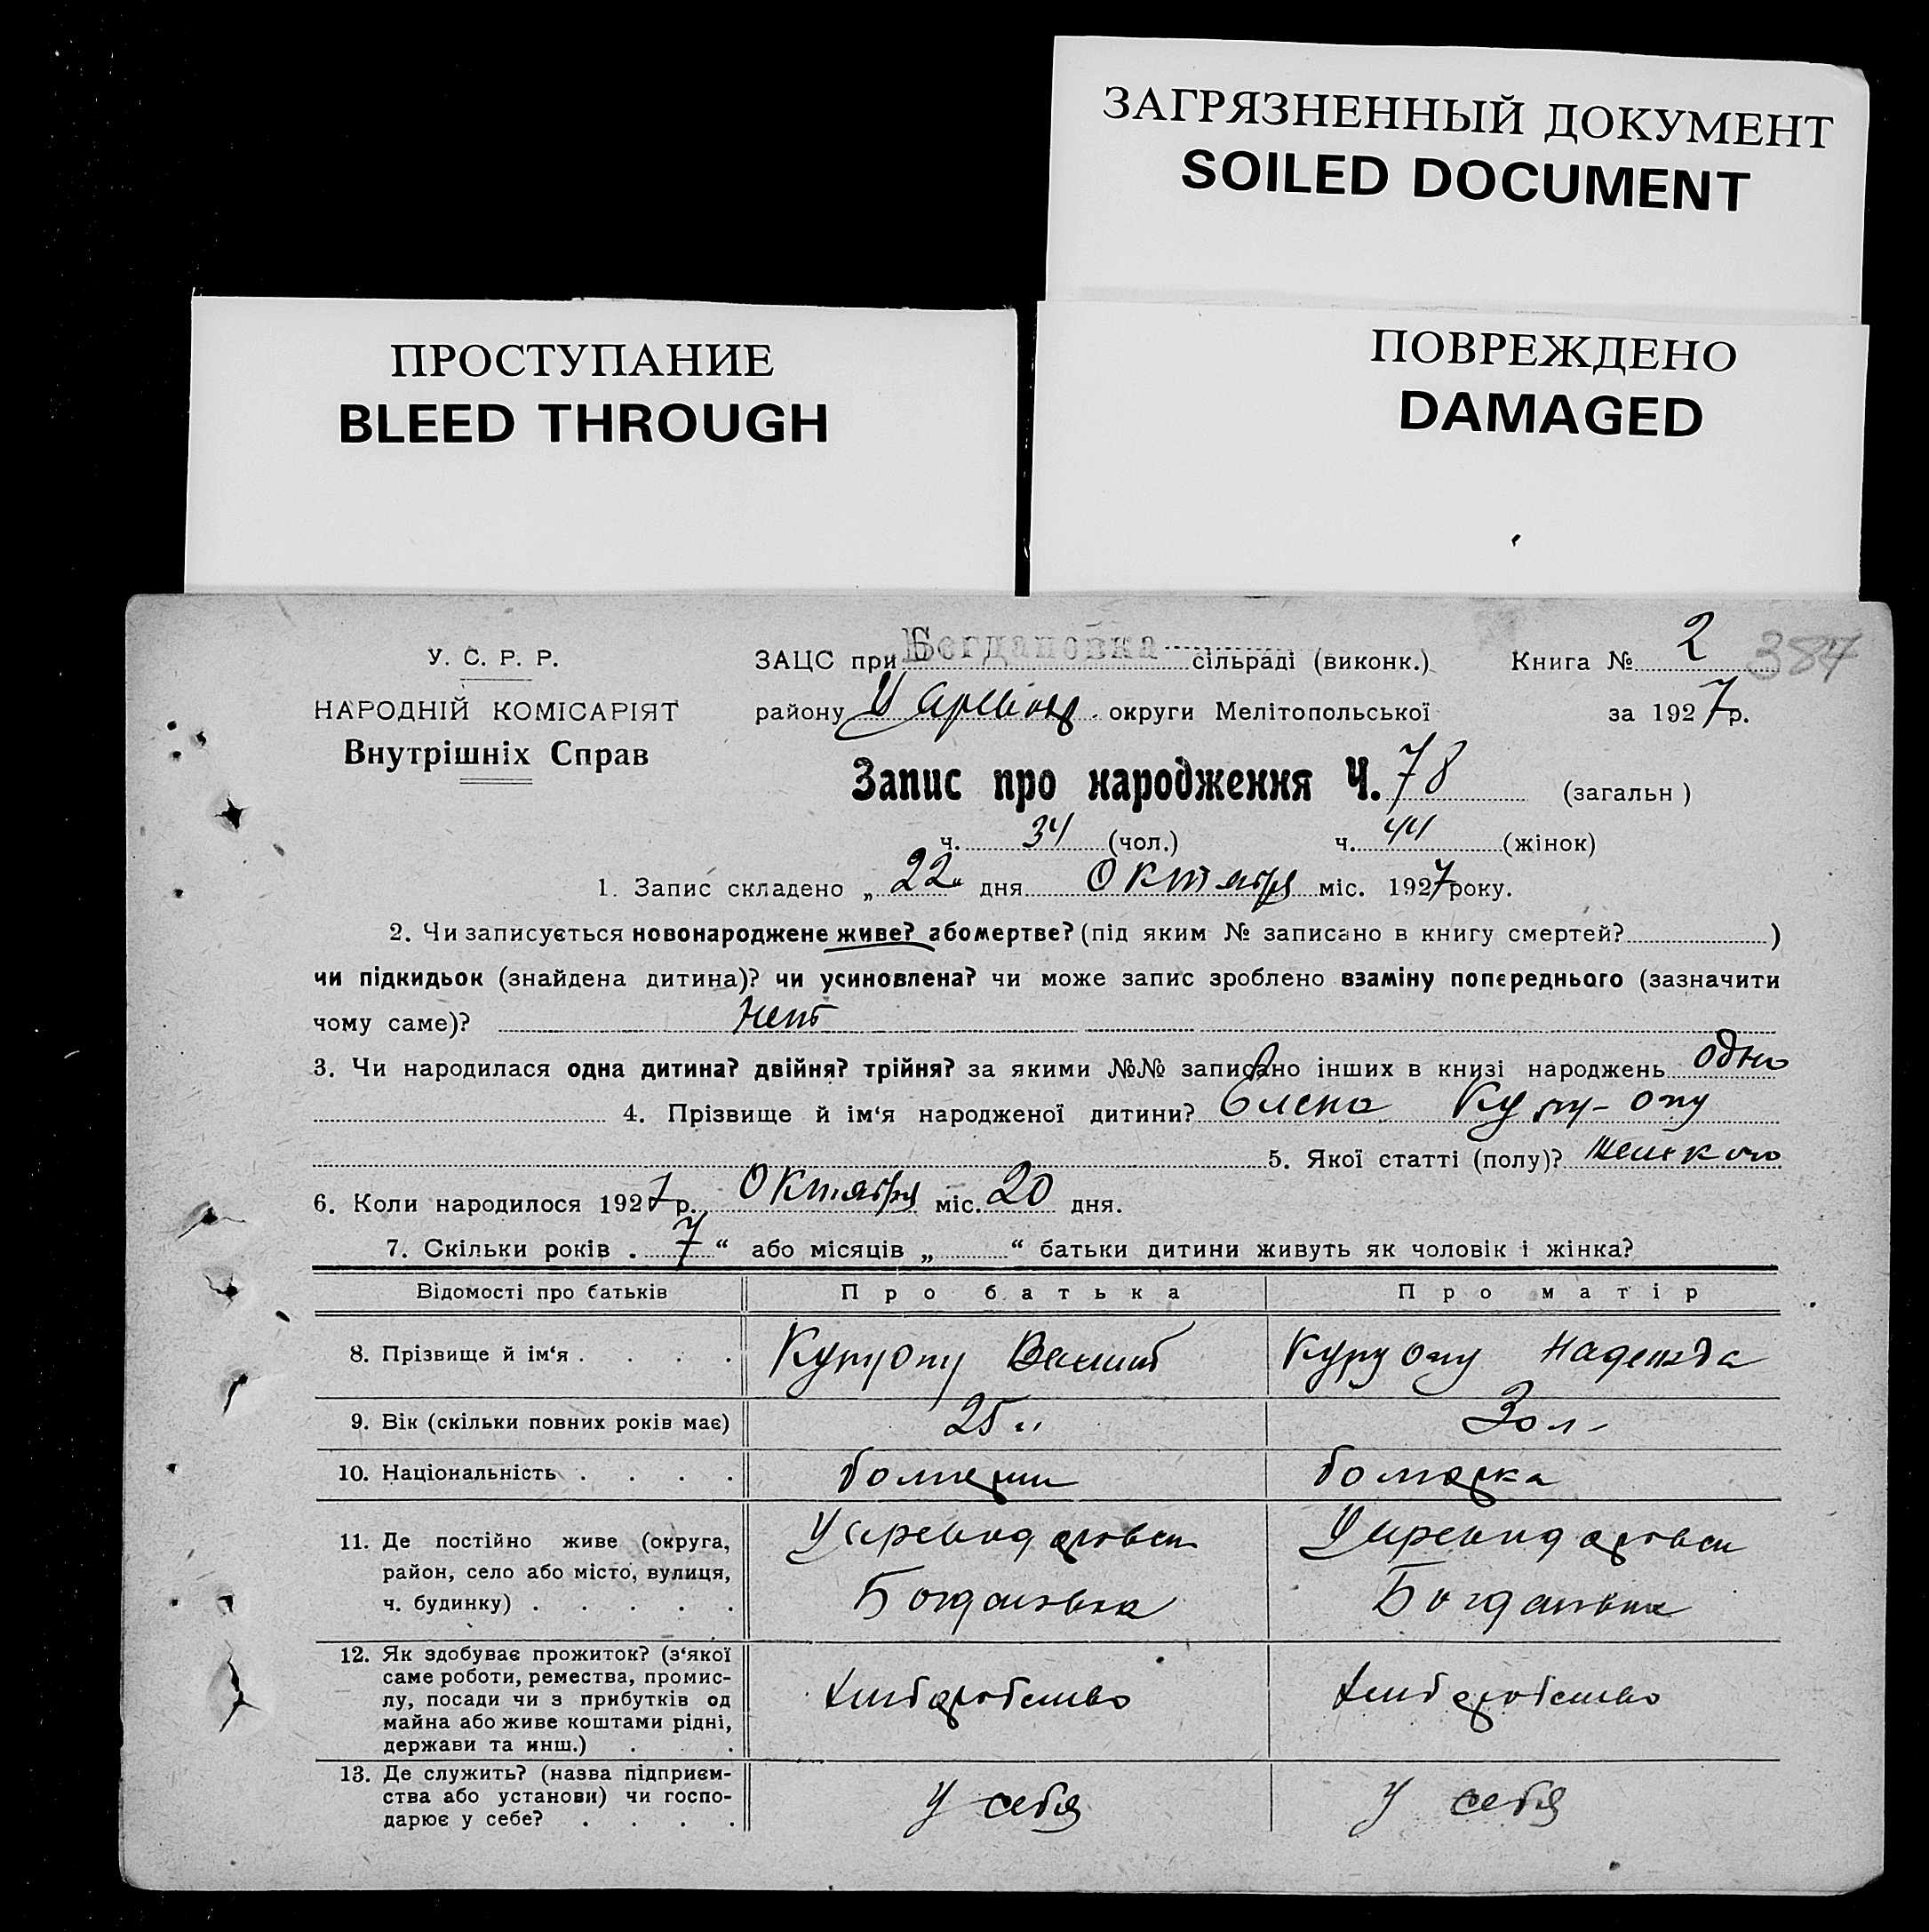 ЗАГРЯЗНЕННЫЙ ДОКУМЕНТ
SOILED DOCUMENT
ПРОСТУПАНИЕ
BLEED THROUGH
ПОВРЕЖДЕНО
DAMAGED
У. С. Р. Р.
НАРОДНІЙ КОМІСАРІЯТ
Внутрішніх Справ
ЗАЦС при Богдановка сільраді (виконк.) Книга № 2 384
району округи Мелітопольської за 1927р.
Запис про народження Ч. 78 (загальн)
ч. 34 (чол.) ч. 44 (жінок)
1. Запис складено „22“ дня Октября міс. 1927 року.
2. Чи записується новонароджене живе? або мертве? (під яким № записано в книгу смертей? )
чи підкидьок (знайдена дитина)? чи усиновлена? чи може запис зроблено взаміну попереднього (зазначити
чому саме)? нет
3. Чи народилася одна дитина? двійня? трійня? за якими №№ записано інших в книзі народжень одно
4. Прізвище й ім‘я народженої дитини? Олена
5. Якої статті (полу)? женского
6. Коли народилося 1927 р. Октября міс. 20 дня.
7. Скільки років . 7 “ або місяців „ “ батьки дитини живуть як чоловік і жінка?
Відомості про батьків Про батька Про матір
8. Прізвище й ім‘я . . . . Надежда
9. Вік (скільки повних років має) 25 30 л
10. Національність . . . . болгарин болгарка
11. Де постійно живе (округа,
район, село або місто, вулиця,
ч. будинку) . . . . . Богдановка Богдановка
12. Як здобуває прожиток? (з‘якої
саме роботи, ремества, промис-
лу, посади чи з прибутків од
майна або живе коштами рідні,
держави та инш.) . . . хлиборобство хлиборобство
13. Де служить? (назва підприєм-
ства або установи) чи госпо-
дарює у себе? . . . . у себя у себя